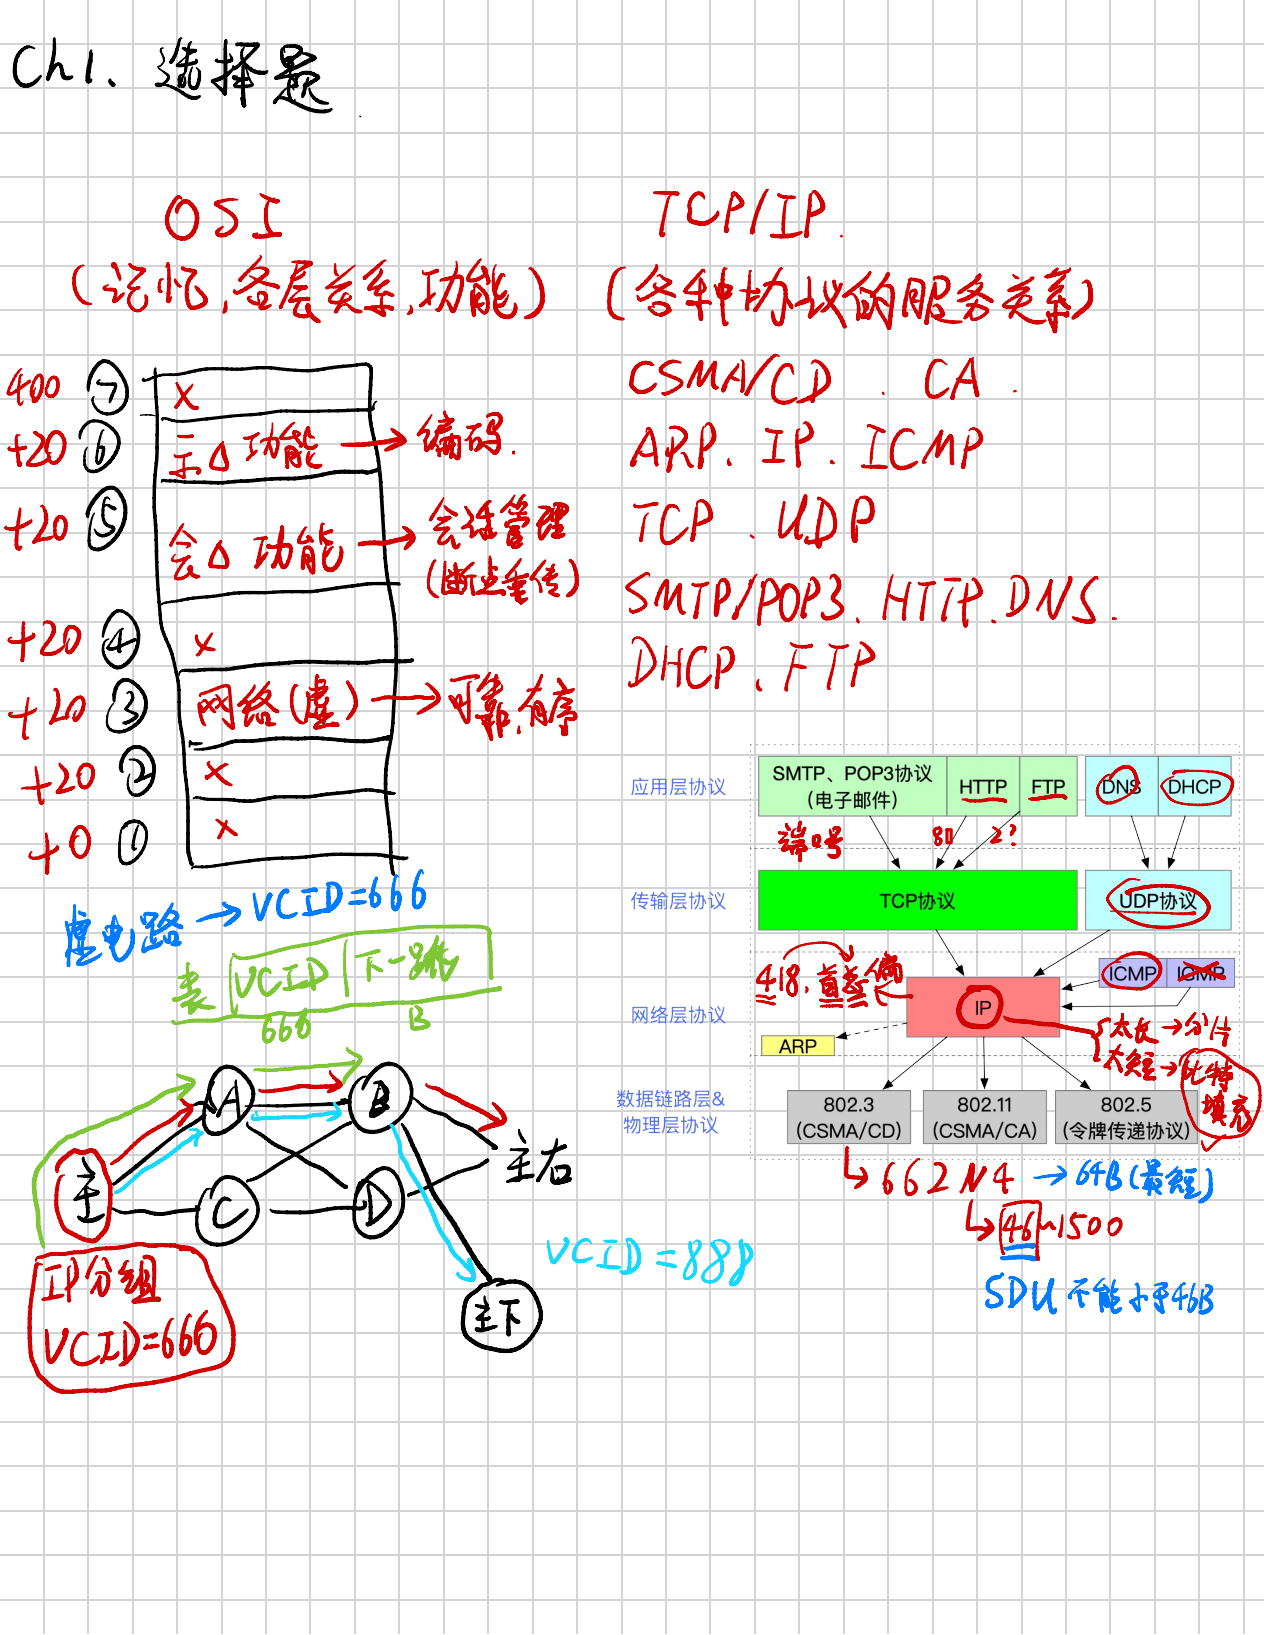 Ch1、选择题
OSI
(记忆,各层关系,功能)
400 ⑦ x
+20 ⑥ 示△功能 → 编码.
+20 ⑤ 会△功能 → 会话管理
(断点重传)
+20 ④ x
+20 ③ 网络(虚) → 可靠,有序
+20 ② x
+0 ① x
虚电路 → VCID=666
表 VCID 下一跳
666 B
A B
主 主右
C D
VCID=888
主下
IP分组
VCID=666
TCP/IP.
(各种协议的服务关系)
CSMA/CD . CA .
ARP、IP、ICMP
TCP、UDP
SMTP/POP3、HTTP、DNS.
DHCP、FTP
应用层协议
SMTP、POP3协议
(电子邮件)
HTTP FTP DNS DHCP
端口号 80 2?
传输层协议
TCP协议 UDP协议
418.首差偏
网络层协议
IP ICMP IGMP
ARP
太长→分片
太短→比特
填充
数据链路层&
物理层协议
802.3 802.11 802.5
(CSMA/CD) (CSMA/CA) (令牌传递协议)
662N4 → 64B(最短)
46~1500
SDU不能小于46B